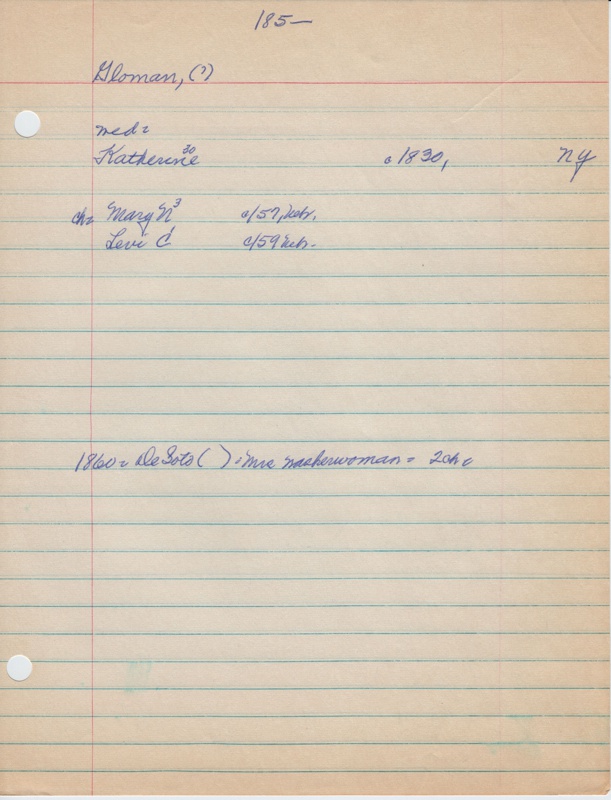 185—
Gloman, (?)
med=
Katherine 30 c1830, NY
ch= Mary N 3 c/57, Nebr.
Levi C 1 c/59 Nebr.
1860= DeSoto ( ): Mrs washerwoman= 2ch.